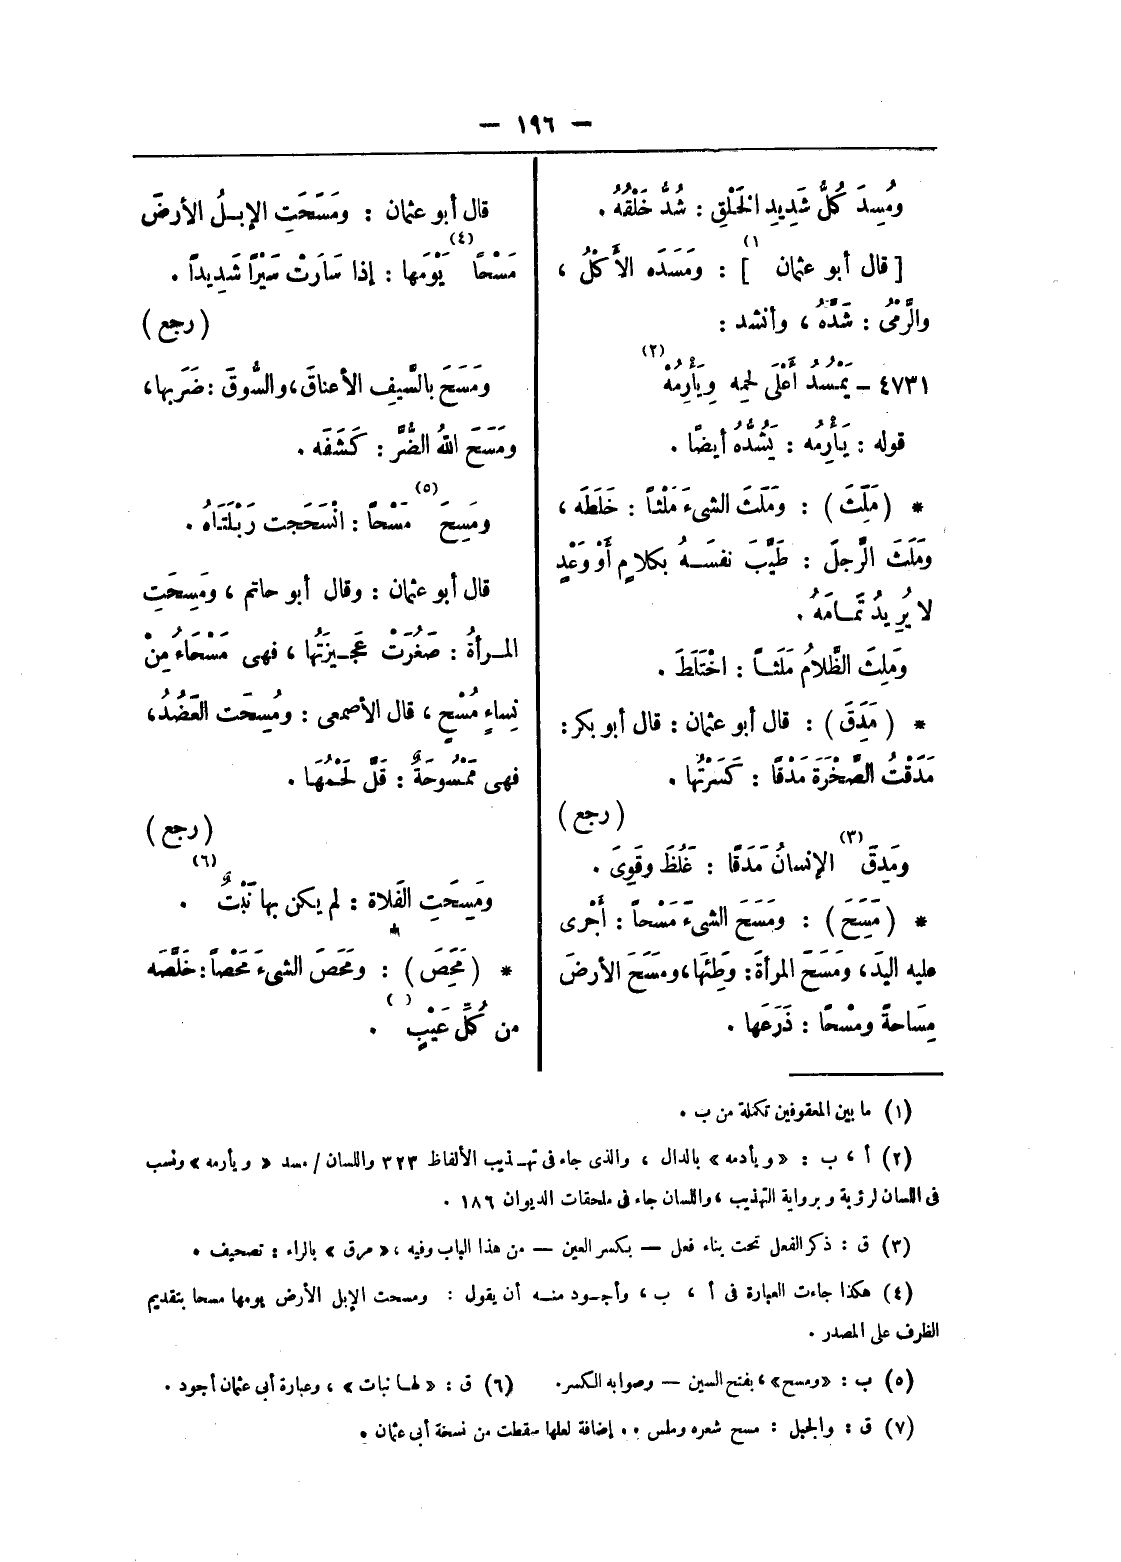 — ١٩٦ —
ومُسِدَ كُلُّ شَدِيدِ الخَلْقِ : شُدَّ خَلْقُهُ .
[ قال أبو عثمان (١) ] : ومَسَدَه الأَكْلُ ،
والرَّمْىُ : شَدَّهُ ، وأنشد :
٤٧٣١ – يَمْسُدُ أَعْلَى لحمِه ويَأْرِمُهْ (٢)
قوله : يَأْرِمُه : يَشُدُّهُ أيضًا .
* ( مَلَثَ ) : ومَلَثَ الشىءَ مَلْثاً : خَلَطَه ،
ومَلَثَ الرَّجلَ : طَيَّبَ نفسَهُ بكلامٍ أَوْ وَعْدٍ
لا يُرِيدُ تَمَامَهُ .
ومَلِثَ الظَّلامُ مَلَثاً : اخْتَلَطَ .
* ( مَدَقَ ) : قال أبو عثمان : قال أبو بكر :
مَدَقْتُ الصَّخْرَةَ مَدْقًا : كَسَرْتُها .
( رجع )
ومَدِقَ (٣) الإنسانُ مَدَقًا : غَلُظَ وقَوِىَ .
* ( مَسَحَ ) : ومَسَحَ الشىءَ مَسْحاً : أَجْرى
عليه اليَدَ ، ومَسَحَ المرأةَ : وَطِئَها ، ومسَحَ الأرضَ
مِسَاحةً ومسْحًا : ذَرَعَها .
قال أبو عثمان : ومَسَحَتِ الإبلُ الأرضَ
مَسْحًا (٤) يَوْمَها : إذا سَارَتْ سَيْرًا شَدِيدًا .
( رجع )
ومَسَحَ بالسَّيفِ الأعناقَ ، والسُّوقَ : ضَرَبها ،
ومَسَحَ اللهُ الضُّرَّ : كَشَفَه .
ومَسِحَ (٥) مَسْحًا : انْسَحَجت رَبْلَتَاهُ .
قال أبو عثمان : وقال أبو حاتم ، ومَسِحَتِ
المرأةُ : صَغُرَتْ عَجِيزَتُها ، فهى مَسْحَاءُ مِنْ
نِساءٍ مُسْحٍ ، قال الأصمعى : ومُسِحَت العَضُدُ ،
فهى مَمْسُوحَةٌ : قَلَّ لَحْمُهَا .
( رجع )
ومَسِحَتِ الفَلاة : لم يكن بها نَبْتٌ (٦) .
* ( مَحَصَ ) : ومَحَصَ الشىءَ مَحْصاً : خَلَّصَه
من كُلِّ عَيْبٍ ( ) .
(١) ما بين المعقوفين تكملة من ب .
(٢) أ ، ب : « ويأدمه » بالدال ، والذى جاء فى تهذيب الألفاظ ٣٢٣ واللسان / مسد « ويأرمه » ونسب
فى اللسان لرؤبة وبرواية التهذيب ، واللسان جاء فى ملحقات الديوان ١٨٦ .
(٣) ق : ذكر الفعل تحت بناء فعل – بكسر العين – من هذا الباب وفيه ، « مرق » بالراء : تصحيف .
(٤) هكذا جاءت العبارة فى أ ، ب ، وأجود منه أن يقول : ومسحت الإبل الأرض يومها مسحا بتقديم
الظرف على المصدر .
(٥) ب : « ومسح » ، بفتح السين – وصوابه الكسر . (٦) ق : « لها نبات » ، وعبارة أبى عثمان أجود .
(٧) ق : والجبل : مسح شعره وملس .. إضافة لعلها سقطت من نسخة أبى عثمان .